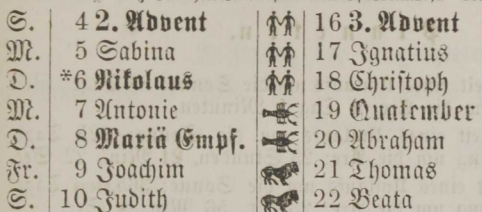 S. 4 2. Advent 16 3. Advent
M. 5 Sabina 17 Ignatius
D. *6 Nikolaus 18 Christoph
M. 7 Antonie 19 Quatember
D. 8 Mariä Empf. 20 Abraham
Fr. 9 Joachim 21 Thomas
S. 10 Judith 22 Beata